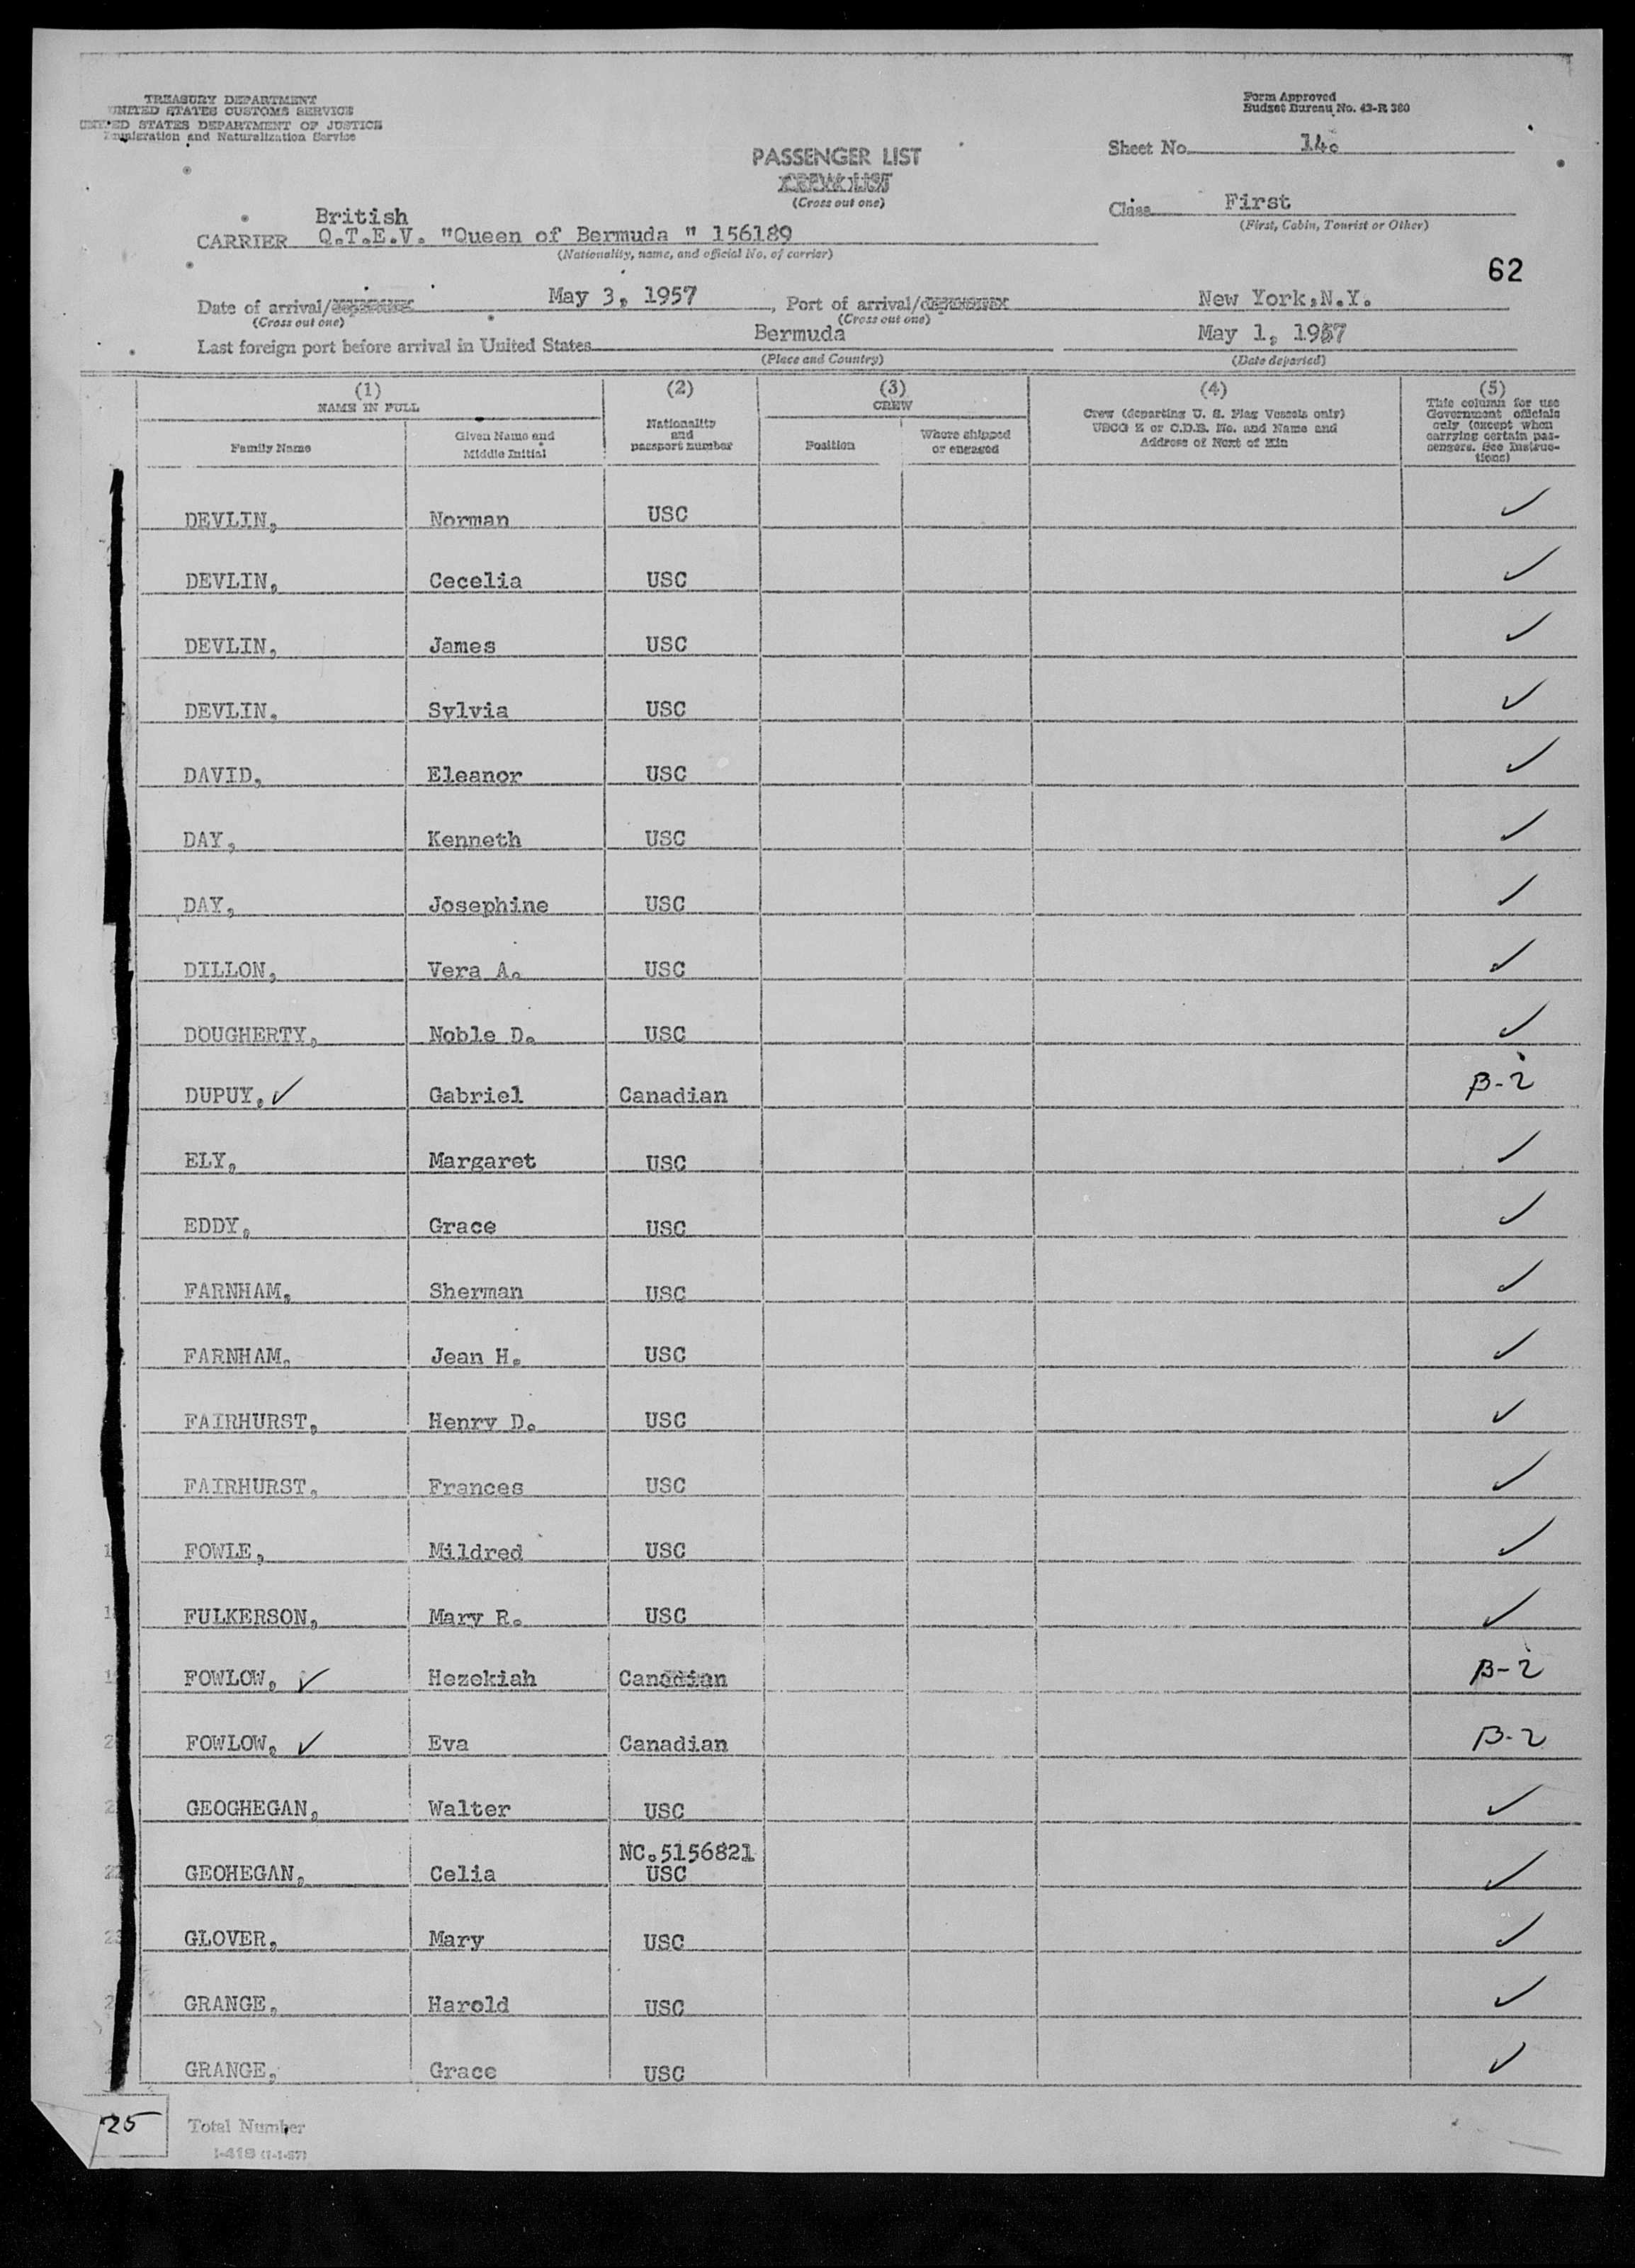 TREASURY DEPARTMENT
UNITED STATES CUSTOMS SERVICE
UNITED STATES DEPARTMENT OF JUSTICE
Immigration and Naturalization Service
Form Approved
Budget Bureau No. 43-R 380
Sheet No. 14.
PASSENGER LIST
CREW LIST
(Cross out one)
Class First
(First, Cabin, Tourist or Other)
British
CARRIER Q.T.E.V. "Queen of Bermuda " 156189
(Nationality, name, and official No. of carrier)
62
Date of arrival/departure May 3, 1957, Port of arrival/departure New York,N.Y.
(Cross out one) (Cross out one)
Last foreign port before arrival in United States Bermuda May 1, 1957
(Place and Country) (Date departed)
(1) (2) (3) (4) (5)
NAME IN FULL
Family Name
Given Name and Middle Initial
Nationality and passport number
CREW
Position
Where shipped or engaged
Crew (departing U. S. Flag Vessels only)
USCG Z or C.D.B. No. and Name and
Address of Next of Kin
This column for use
Government officials
only (except when
carrying certain pas-
sengers. See Instruc-
tions)
DEVLIN, Norman USC ✓
DEVLIN, Cecelia USC ✓
DEVLIN, James USC ✓
DEVLIN, Sylvia USC ✓
DAVID, Eleanor USC ✓
DAY, Kenneth USC ✓
DAY, Josephine USC ✓
DILLON, Vera A. USC ✓
DOUGHERTY, Noble D. USC ✓
DUPUY, ✓ Gabriel Canadian B-2
ELY, Margaret USC ✓
EDDY, Grace USC ✓
FARNHAM, Sherman USC ✓
FARNHAM, Jean H. USC ✓
FAIRHURST, Henry D. USC ✓
FAIRHURST, Frances USC ✓
FOWLE, Mildred USC ✓
FULKERSON, Mary R. USC ✓
FOWLOW, ✓ Hezekiah Canadian B-2
FOWLOW, ✓ Eva Canadian B-2
GEOGHEGAN, Walter USC ✓
NC.5156821
GEOHEGAN, Celia USC ✓
GLOVER, Mary USC ✓
GRANGE, Harold USC ✓
GRANGE, Grace USC ✓
25 Total Number
I-418 (1-1-57)